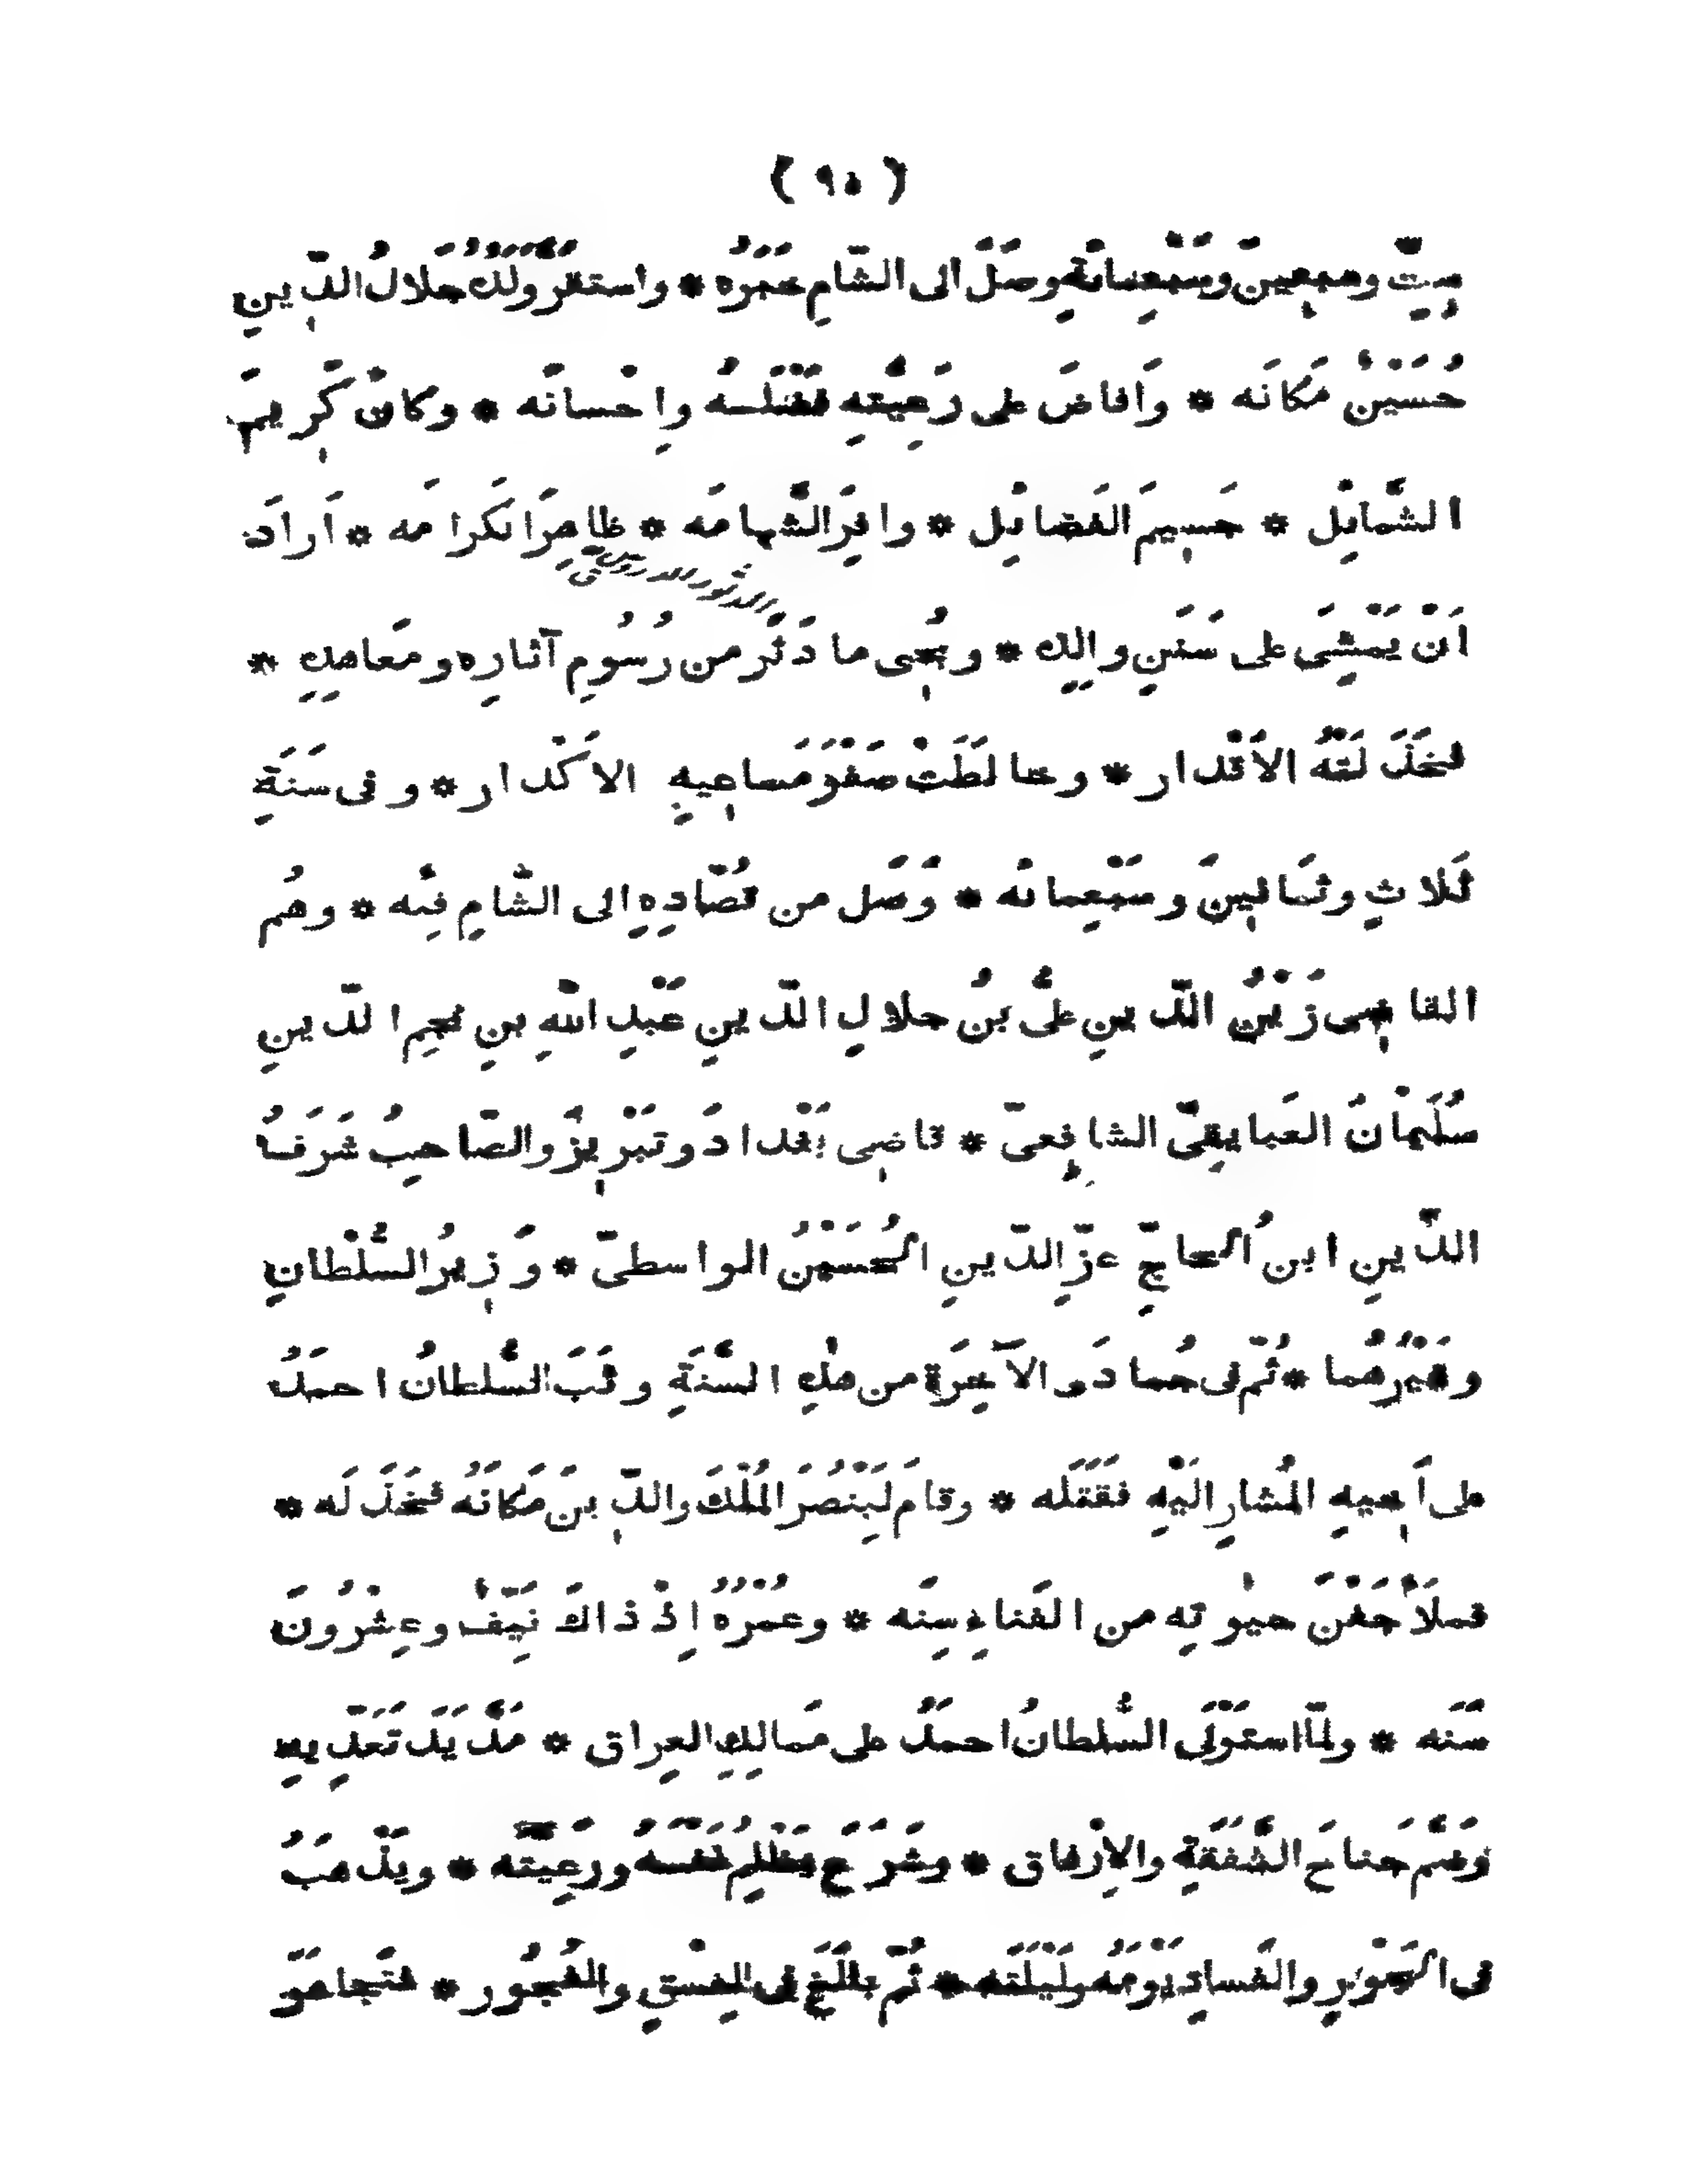 ( ٩٥ )
سِتٍّ وسَبعِينَ وسَبْعِمائةٍ وصَلَ الى الشّامِ خَبَرُه * واستقرَّ وَلَدُه جَلالُ الدّينِ
حُسَيْنٌ مَكانَه * وَافاضَ على رَعِيَّتِهِ فَضْلَـهُ واِحْسانَه * وكانَ كَرِيمَ
الشَّمايِل * جَسِيمَ الفَضايِل * وافِرَ الشَّهامَه * ظاهِرَ الكَرامَه * اَرادَ
اَنْ يَمْشِىَ على سَنَنِ والِدِه * ويُحْيِى ما دَثَرَ من رُسُومِ آثارِه ومَعاهِدِه *
الدثور الدروس
فخَذَلَتْهُ الاَقْدار * وخالَطَتْ صَفْوَ مَساعِيهِ الاَكْدار * وفى سَنَةِ
ثَلاثٍ وثمَانِينَ وسَبْعِمائه * وَصَل من قُصّادِه الى الشّامِ فِئَه * وهُم
القاضِى زَيْنُ الدّينِ علىُّ بنُ جلالِ الدّينِ عَبْدِ اللّٰهِ بنِ نجمِ الدّينِ
سُلَيْمانَ العَبايقِىّ الشافِعىّ * قاضِى بَغْدادَ وتَبْرِيزَ والصّاحِبُ شَرَفُ
الدّينِ ابنُ الحاجِّ عزِّ الدّينِ الحُسَيْنِ الواسطىّ * وَزِيرُ السُّلْطانِ
وغَيْرُهُما * ثُمّ فى جُمادَى الآخِرَةِ من هٰذِه السَّنَةِ وثَبَ السُّلطانُ احمَدُ
على اَخِيهِ المُشارِ اِلَيْهِ فقَتَلَه * وقامَ لِيَنْصُرَ المُلْكَ والدِّينَ مَكانَهُ فخَذَلَه *
فملَأَ جَفْنَ حيٰوتِه من الفَناءِ سِنَه * وعُمْرُهُ اِذْ ذاكَ نَيِّفٌ وعِشْرُونَ
سَنَه * ولمّا استَوْلَى السُّلطانُ احمَدُ على مَمالِكِ العِراق * مَدَّ يَدَ تَعَدِّيهِ
وضَمَّ جَناحَ الشَّفَقَةِ والاِرْفاق * وشَرَعَ يَظْلِمُ نَفْسَهُ ورَعِيَّتَه * ويَذْهَبُ
فى الجَوْرِ والفَسادِ يَوْمَهُ ولَيْلَتَه * ثُمّ بالَغَ فى الفِسْقِ والفُجُور * فتَجاهَرَ